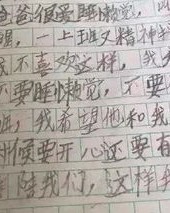 爸爸很爱睡懒觉，
醒，一上班又精神
不喜欢这样，我
不要睡懒觉，不要
，我希望他和我
时候要开心还要有
陪我们，这样